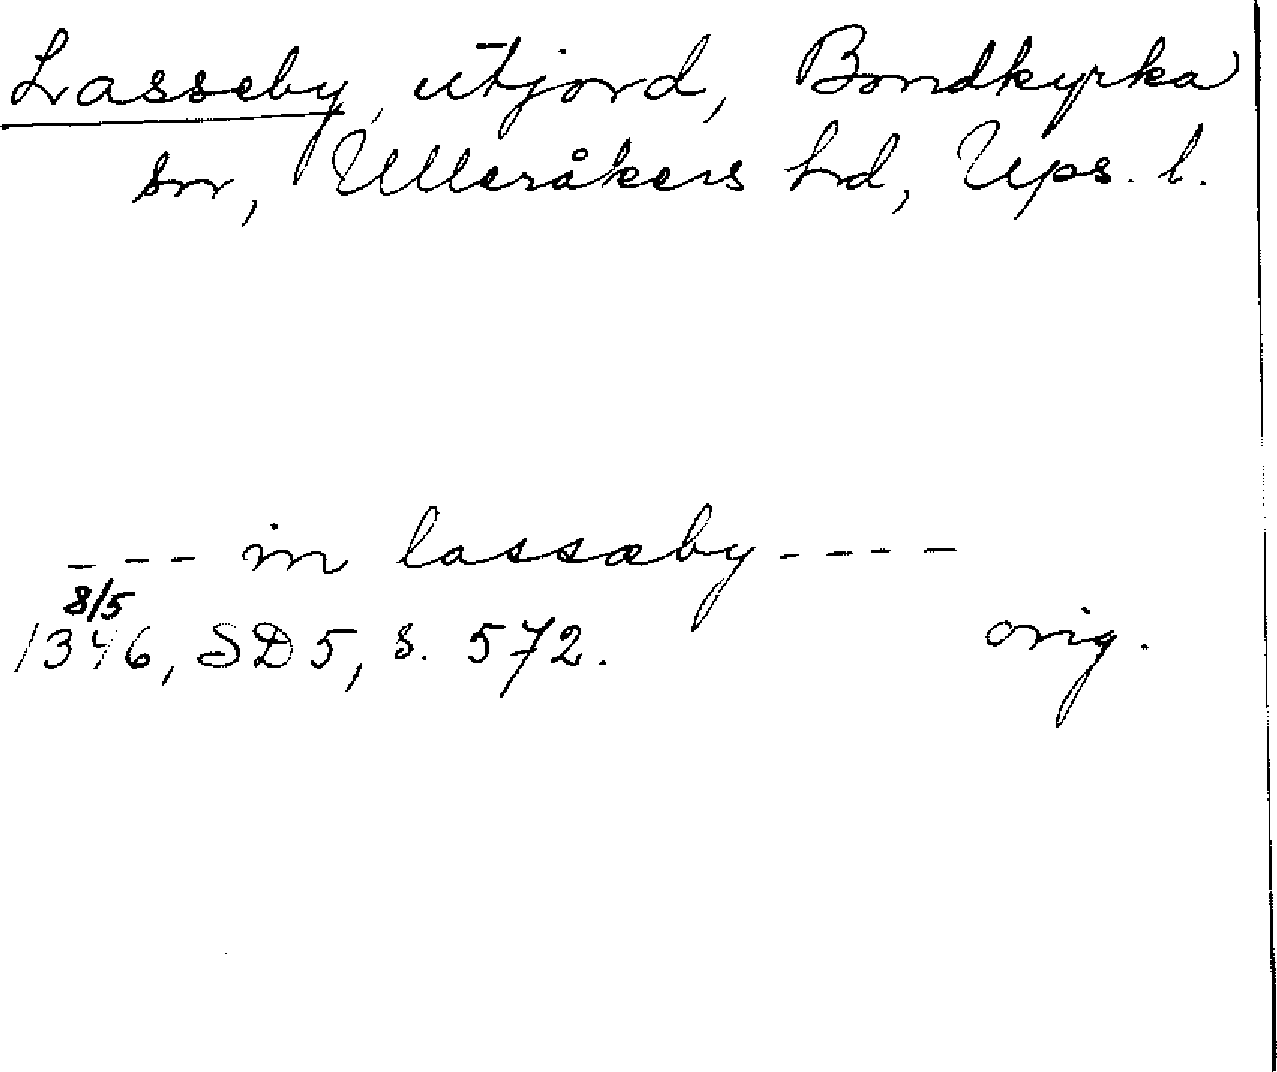 Lasseby, utjord, Bondkyrka
sn, Ulleråkers hd, Ups. l.
--- in lassæby ----
8/5
1346, SD 5, s. 572. orig.